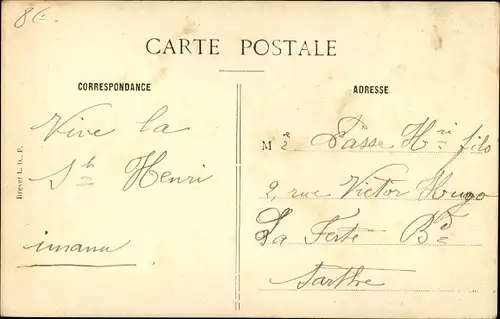 86
CARTE POSTALE
CORRESPONDANCE
Vive la
St Henri
imanu
Brevet L. D. F.
ADRESSE
Mr Passe Hri fils
2, rue Victor Hugo
La Ferte Bd
Sarthe